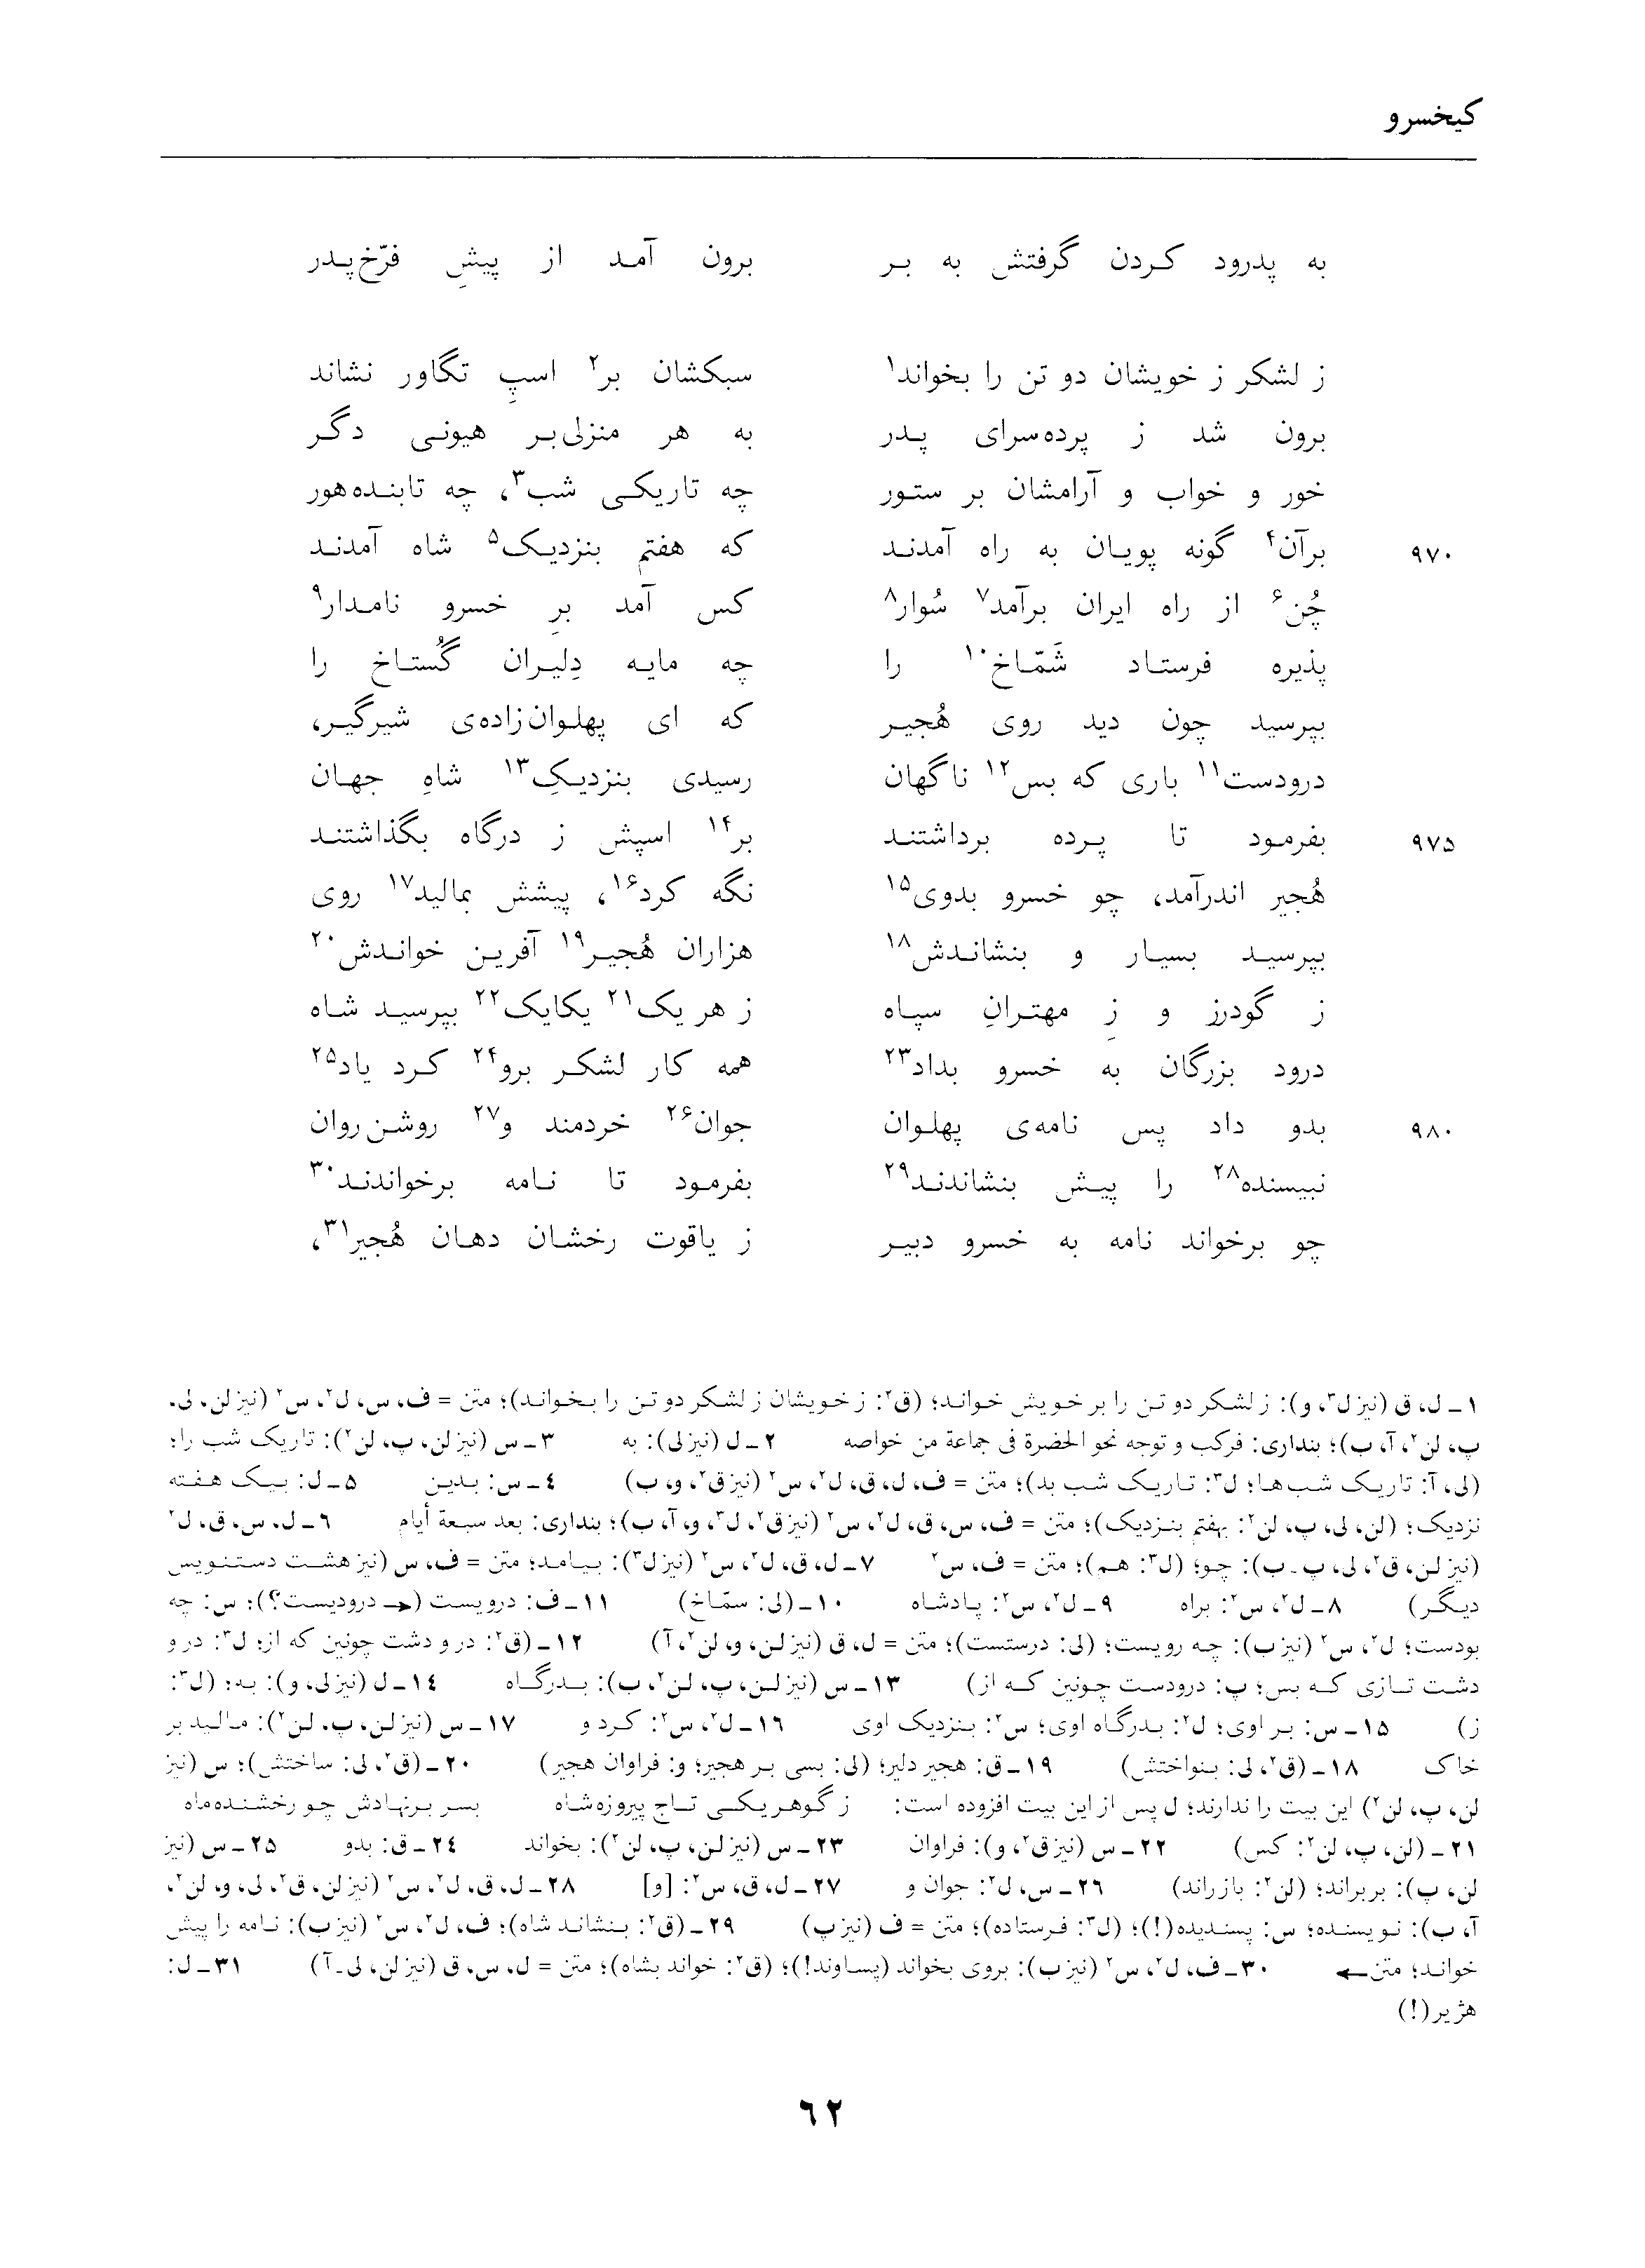 کیخسرو
به پدرود کردن گرفتش به بر برون آمد از پیشِ فرّخ‌پدر
ز لشکر ز خویشان دو تن را بخواند۱ سبکشان بر۲ اسپِ تگاور نشاند
برون شد ز پرده‌سرای پدر به هر منزلی‌بر هیونی دگر
خور و خواب و آرامشان بر ستور چه تاریکی شب۳، چه تابنده‌هور
۹۷۰ برآن۴ گونه پویان به راه آمدند که هفتم بنزدیک۵ شاه آمدند
چُن۶ از راه ایران برآمد۷ سُوار۸ کس آمد برِ خسرو نامدار۹
پذیره فرستاد شَمّاخ۱۰ را چه مایه دِلیران گُستاخ را
بپرسید چون دید روی هُجیر که ای پهلوان‌زاده‌ی شیرگیر،
درودست۱۱ باری که بس۱۲ ناگهان رسیدی بنزدیکِ۱۳ شاهِ جهان
۹۷۵ بفرمود تا پرده برداشتند بر۱۴ اسپش ز درگاه بگذاشتند
هُجیر اندرآمد، چو خسرو بدوی۱۵ نگه کرد۱۶، پیشش بمالید۱۷ روی
بپرسید بسیار و بنشاندش۱۸ هزاران هُجیر۱۹ آفرین خواندش۲۰
ز گودرز و زِ مهترانِ سپاه ز هر یک۲۱ یکایک۲۲ بپرسید شاه
درود بزرگان به خسرو بداد۲۳ همه کار لشکر برو۲۴ کرد یاد۲۵
۹۸۰ بدو داد پس نامه‌ی پهلوان جوان۲۶ خردمند و۲۷ روشن‌روان
نبیسنده۲۸ را پیش بنشاندند۲۹ بفرمود تا نامه برخواندند۳۰
چو برخواند نامه به خسرو دبیر ز یاقوت رخشان دهان هُجیر۳۱،
۱ـ ل، ق (نیز ل۳، و): ز لشکر دو تن را بر خویش خواند؛ (ق۲: ز خویشان ز لشکر دو تن را بخواند)؛ متن = ف، س، ل۲، س۲ (نیز لن، لی،
پ، لن۲، آ، ب)؛ بنداری: فرکب و توجه نحو الحضرة فی جماعة من خواصه ۲ـ ل (نیز لی): به ۳ـ س (نیز لن، پ، لن۲): تاریک شب را؛
(لی، آ: تاریک شب‌ها؛ ل۳: تاریک شب بد)؛ متن = ف، ل، ق، ل۲، س۲ (نیز ق۲، و، ب) ٤ـ س: بدین ۵ـ ل: بیک هفته
نزدیک؛ (لن، لی، پ، لن۲: بهفتم بنزدیک)؛ متن = ف، س، ق، ل۲، س۲ (نیز ق۲، ل۳، و، آ، ب)؛ بنداری: بعد سبعة أیام ٦ـ ل، س، ق، ل۲
(نیز لن، ق۲، لی، پ ـ ب): چو؛ (ل۳: هم)؛ متن = ف، س۲ ۷ـ ل، ق، ل۲، س۲ (نیز ل۳): بیامد؛ متن = ف، س (نیز هشت دستنویس
دیگر) ۸ـ ل۲، س۲: براه ۹ـ ل۲، س۲: پادشاه ۱۰ـ (لی: سمّاخ) ۱۱ـ ف: درویست (← درودیست؟)؛ س: چه
بودست؛ ل۲، س۲ (نیز ب): چه رویست؛ (لی: درستست)؛ متن = ل، ق (نیز لن، و، لن۲، آ) ۱۲ـ (ق۲: در و دشت چونین که از؛ ل۳: در و
دشت تازی که بس؛ پ: درودست چونین که از) ۱۳ـ س (نیز لن، پ، لن۲، ب): بدرگاه ١٤ـ ل (نیز لی، و): به؛ (ل۳:
ز) ۱۵ـ س: بر اوی؛ ل۲: بدرگاه اوی؛ س۲: بنزدیک اوی ١٦ـ ل۲، س۲: کرد و ۱۷ـ س (نیز لن، پ، لن۲): مالید بر
خاک ۱۸ـ (ق۲، لی: بنواختش) ۱۹ـ ق: هجیر دلیر؛ (لی: بسی بر هجیر؛ و: فراوان هجیر) ۲۰ـ (ق۲، لی: ساختش)؛ س (نیز
لن، پ، لن۲) این بیت را ندارند؛ ل پس از این بیت افزوده است: ز گوهر یکی تاج پیروزه‌شاه بسر برنهادش چو رخشنده‌ماه
۲۱ـ (لن، پ، لن۲: کس) ۲۲ـ س (نیز ق۲، و): فراوان ۲۳ـ س (نیز لن، پ، لن۲): بخواند ٢٤ـ ق: بدو ۲۵ـ س (نیز
لن، پ): بربراند؛ (لن۲: بازراند) ٢٦ـ س، ل۲: جوان و ۲۷ـ ل، ق، س۲: [و] ۲۸ـ ل، ق، ل۲، س۲ (نیز لن، ق۲، لی، و، لن۲،
آ، ب): نویسنده؛ س: پسندیده(!)؛ (ل۳: فرستاده)؛ متن = ف (نیز پ) ۲۹ـ (ق۲: بنشاند شاه)؛ ف، ل۲، س۲ (نیز ب): نامه را پیش
خواند؛ متن← ۳۰ـ ف، ل۲، س۲ (نیز ب): بروی بخواند (پساوند!)؛ (ق۲: خواند بشاه)؛ متن = ل، س، ق (نیز لن، لی ـ آ) ۳۱ـ ل:
هژیر(!)
٦۲